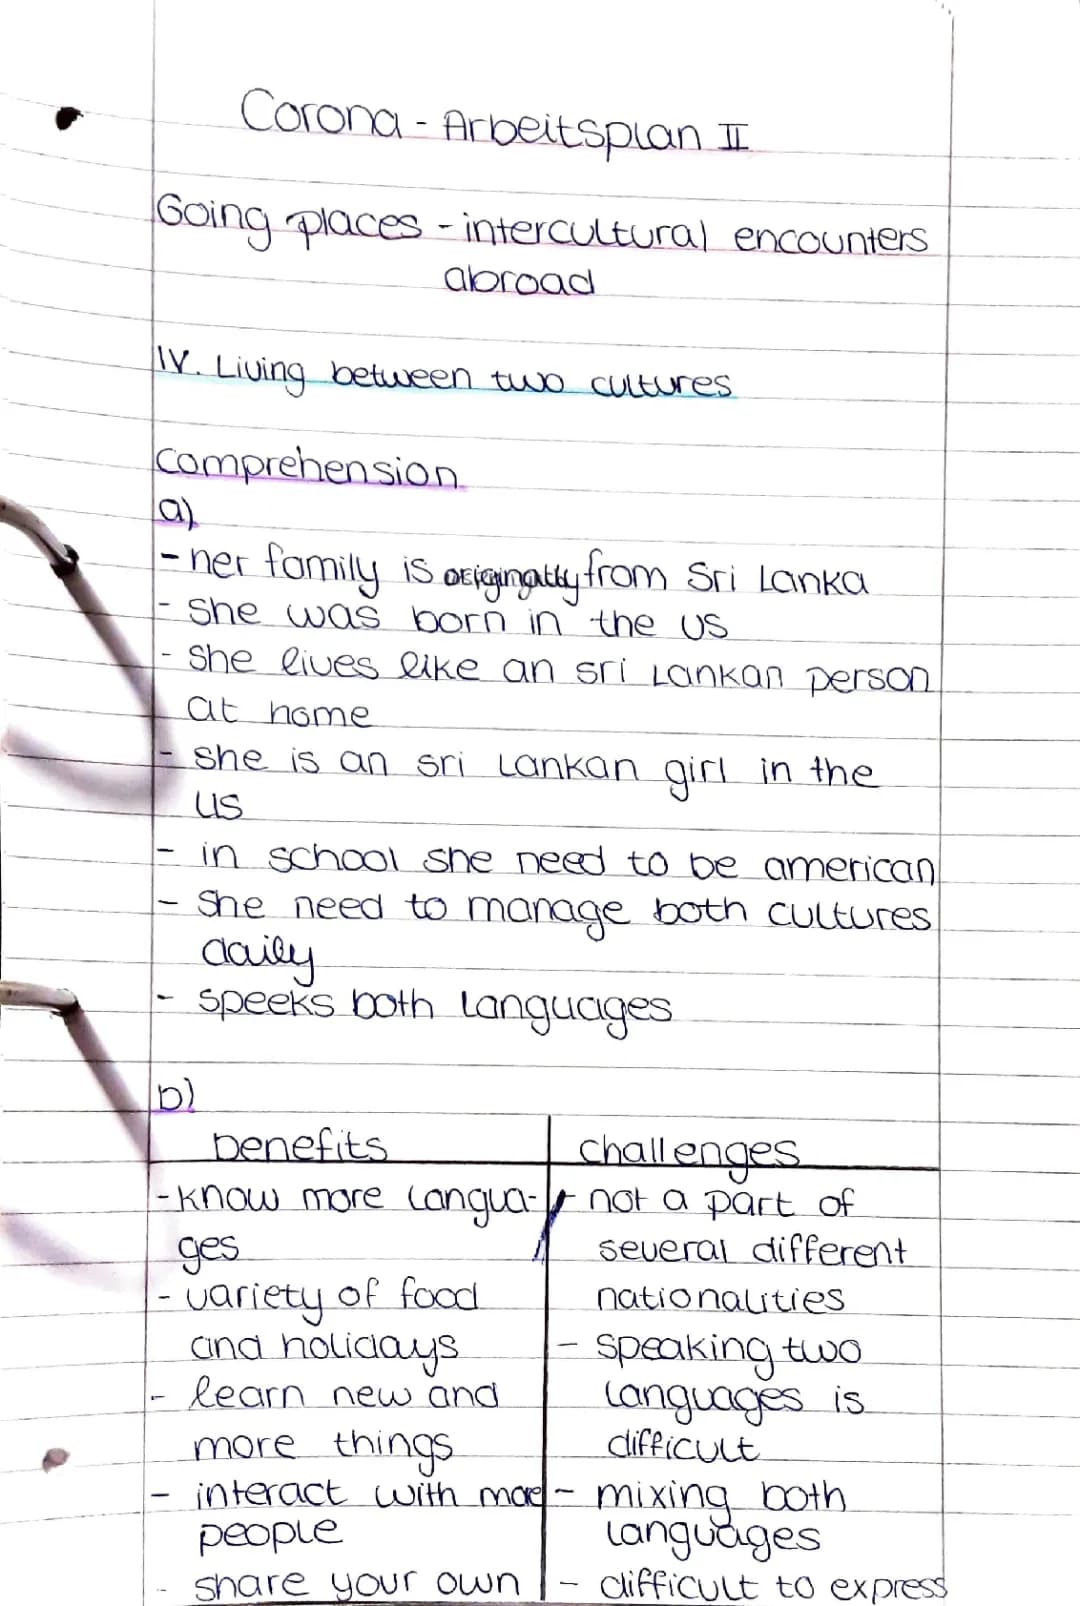 Corona - Arbeitsplan II
Going places - intercultural encounters
abroad
IV. Living between two cultures
comprehension
a)
- her family is originally from Sri Lanka
- she was born in the US
- she lives like an sri Lankan person
at home
- she is an sri Lankan girl in the
US
- in school she need to be american
- She need to manage both cultures
daily
- speeks both languages
b)
benefits | challenges
- know more langua- | - not a part of
ges | several different
- variety of food | nationalities
and holidays | - speaking two
- learn new and | languages is
more things | difficult
- interact with more | - mixing both
people | languages
- share your own | - difficult to express